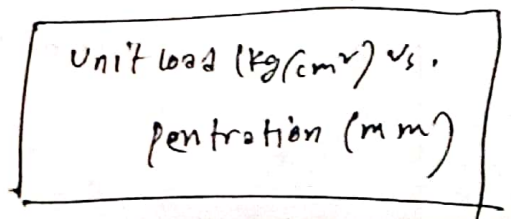 Unit load (kg/cm²) vs.
pentration (mm)